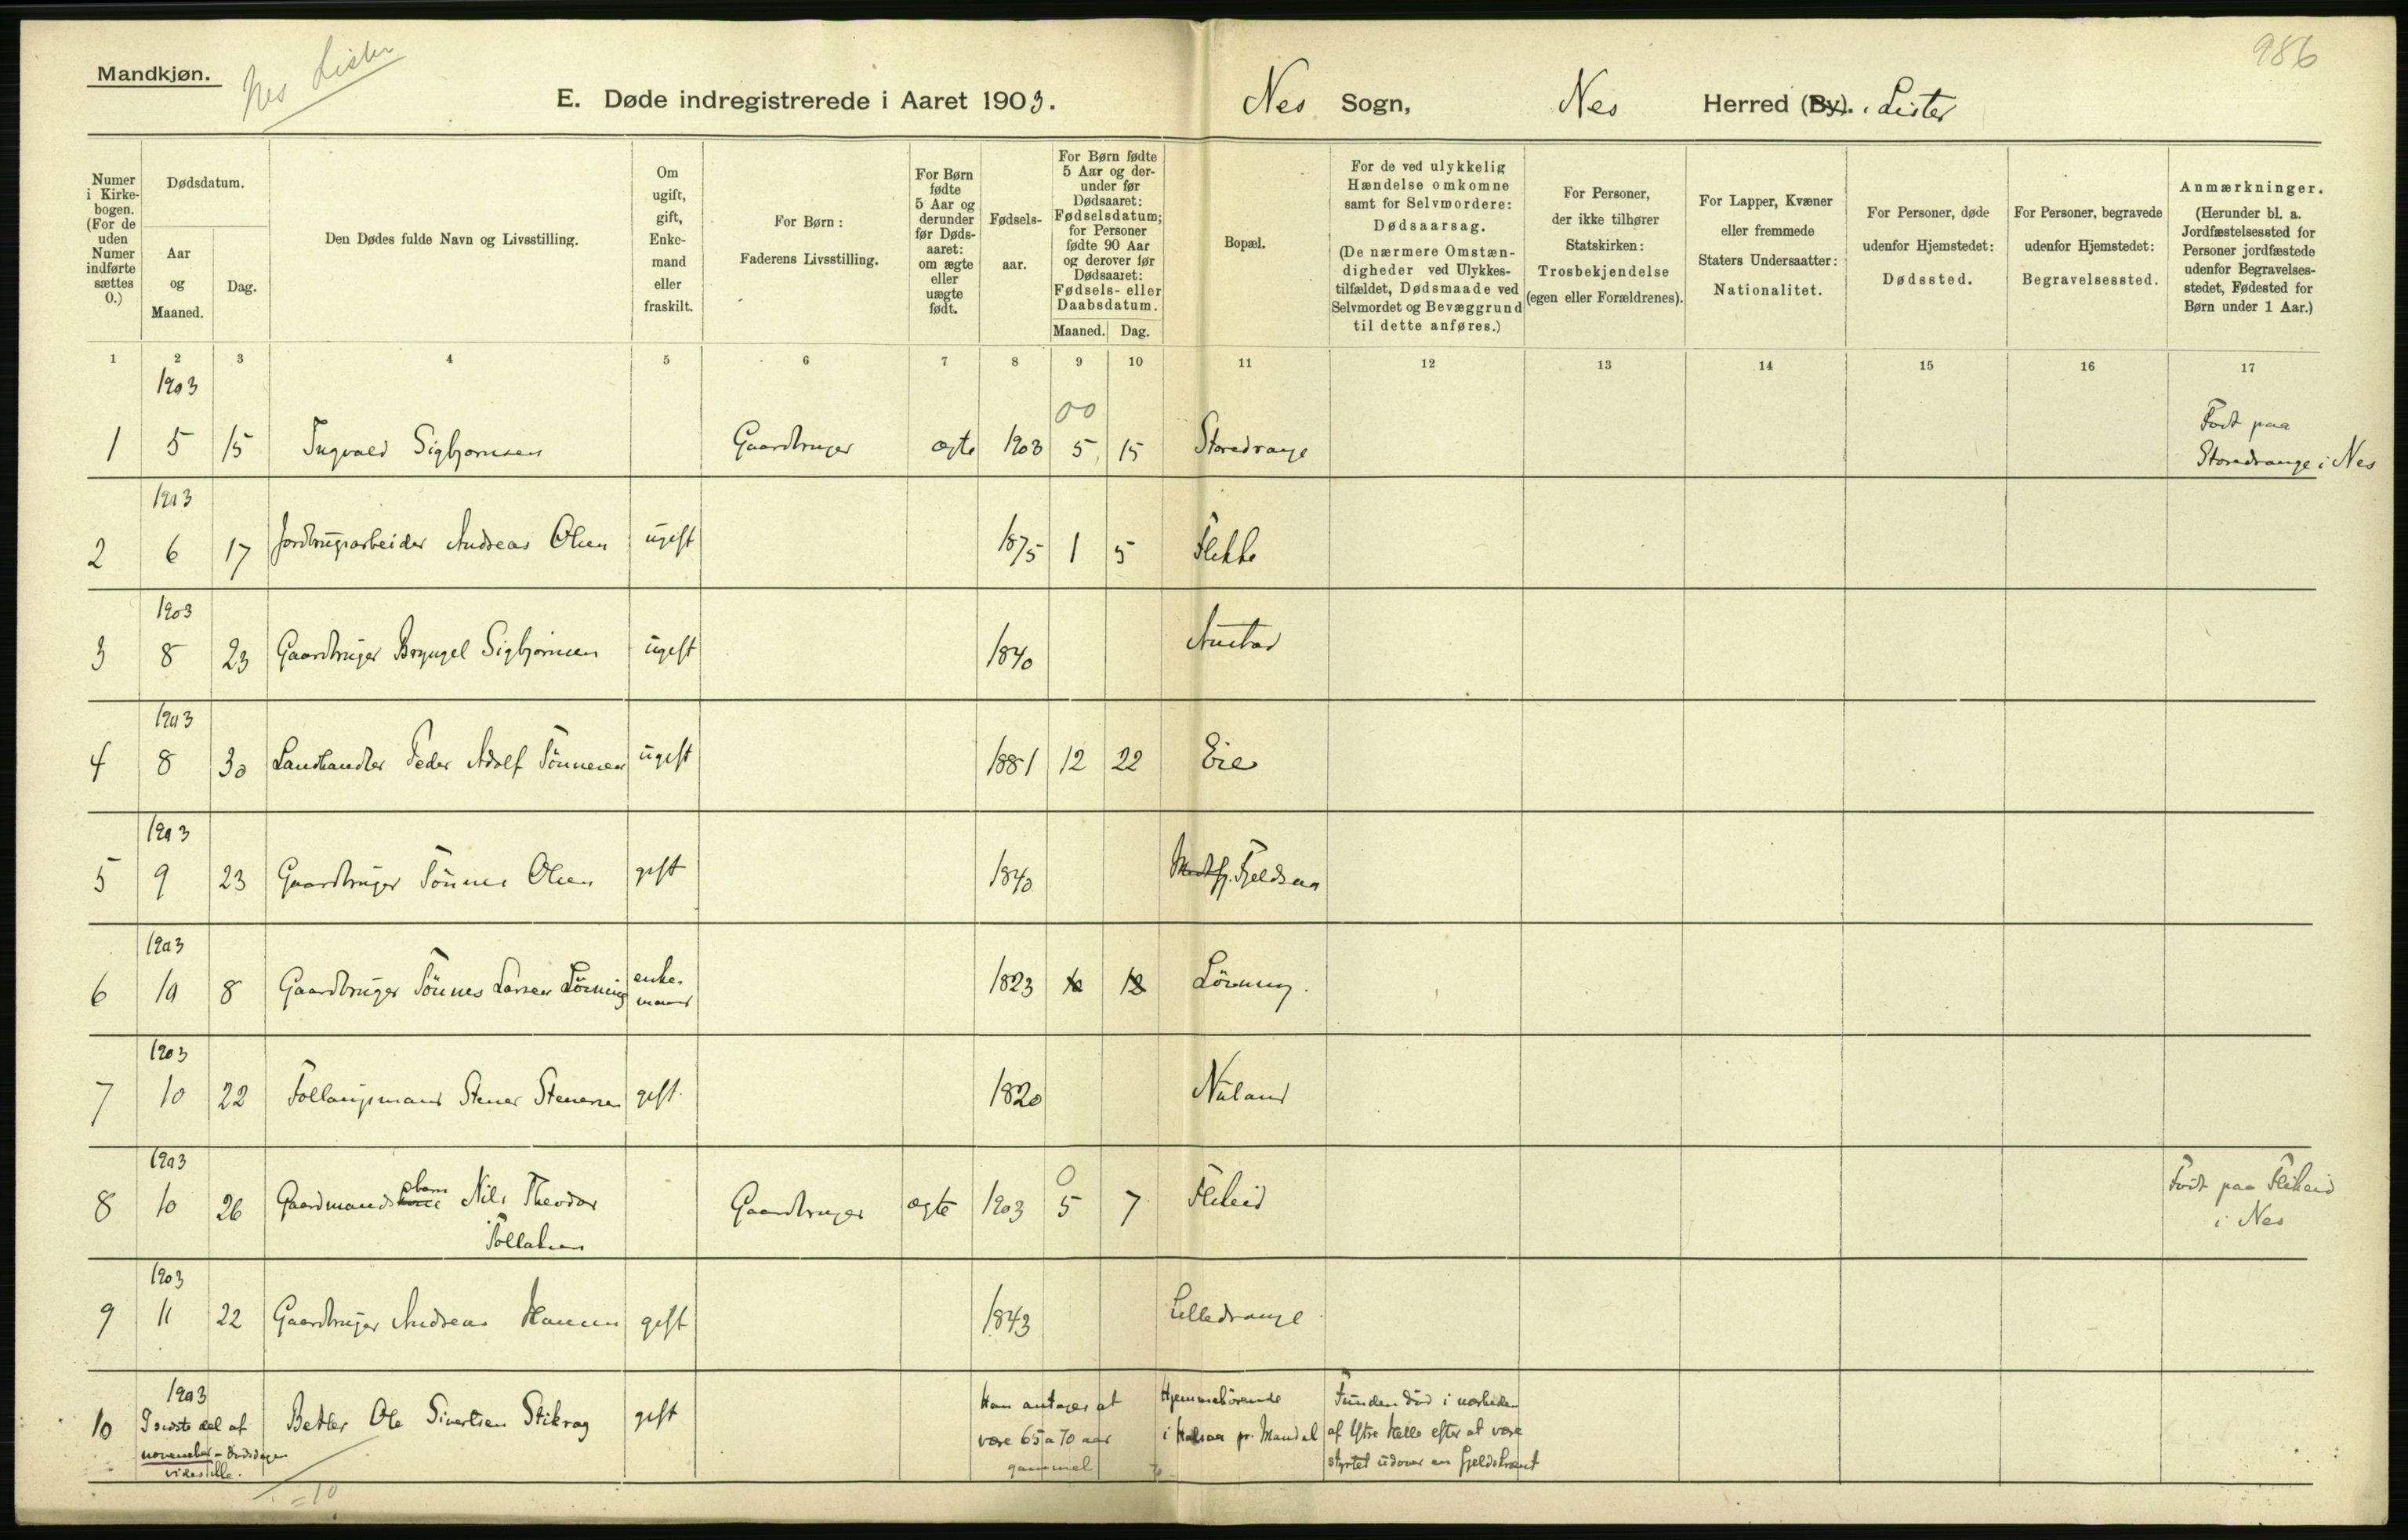 Mandkjøn.
Nes Lister
986
E. Døde indregistrerede i Aaret 1903. Nes Sogn, Nes Herred (By). i Lister
Numer i Kirke-bogen. (For de uden Numer indførte sættes 0.)
Dødsdatum.
Aar og Maaned.
Dag.
Den Dødes fulde Navn og Livsstilling.
Om ugift, gift, Enke-mand eller fraskilt.
For Børn: Faderens Livsstilling.
For Børn fødte 5 Aar og derunder før Døds-aaret: om ægte eller uægte født.
Fødsels-aar.
For Børn fødte 5 Aar og der-under før Dødsaaret: Fødselsdatum; for Personer fødte 90 Aar og derover før Dødsaaret: Fødsels- eller Daabsdatum.
Maaned. Dag.
Bopæl.
For de ved ulykkelig Hændelse omkomne samt for Selvmordere: Dødsaarsag. (De nærmere Omstæn-digheder ved Ulykkes-tilfældet, Dødsmaade ved Selvmordet og Bevæggrund til dette anføres.)
For Personer, der ikke tilhører Statskirken: Trosbekjendelse (egen eller Forældrenes).
For Lapper, Kvæner eller fremmede Staters Undersaatter: Nationalitet.
For Personer, døde udenfor Hjemstedet: Dødssted.
For Personer, begravede udenfor Hjemstedet: Begravelsessted.
Anmærkninger. (Herunder bl. a. Jordfæstelsessted for Personer jordfæstede udenfor Begravelses-stedet, Fødested for Børn under 1 Aar.)
1 2 3 4 5 6 7 8 9 10 11 12 13 14 15 16 17
1903
00
1 5 15 Ingvald Sigbjørnsen Gaardbruger ægte 1903 5 15 Storedrange Født paa
Storedrange i Nes
1903
2 6 17 Jordbrugsarbeider Andreas Olsen ugift 1875 1 5 Flikke
1903
3 8 23 Gaardbruger Bryngel Sigbjørnsen ugift 1840 Austad
1903
4 8 30 Landhandler Peder Adolf Tønnesen ugift 1881 12 22 Eie
1903
5 9 23 Gaardbruger Tønnes Olsen gift 1840 Fjeldsaa
1903
6 10 8 Gaardbruger Tønnes Larsen Løvning enke-
mand 1823 12 Løvning.
1903
7 10 22 Follaugsmand Stener Stenersen gift. 1820 Nuland
1903
0
8 10 26 Gaardmandsbarn Nils Theodor Gaardbruger ægte 1903 5 7 Flikeid Født paa Flikeid
Tollaksen i Nes
1903
9 11 22 Gaardbruger Andreas Hansen gift 1843 Lilledrange
1903
10 I sidste del af november - dødsdagen vides ikke. Betler Ole Sivertsen Stikrag gift Han antages at være 65 a 70 aar gammel Hjemmehørende i Halsaa pr. Mandal Funden død i nærheden af Ytre Helle efter at være styrtet udover en fjeldskrænt
=10